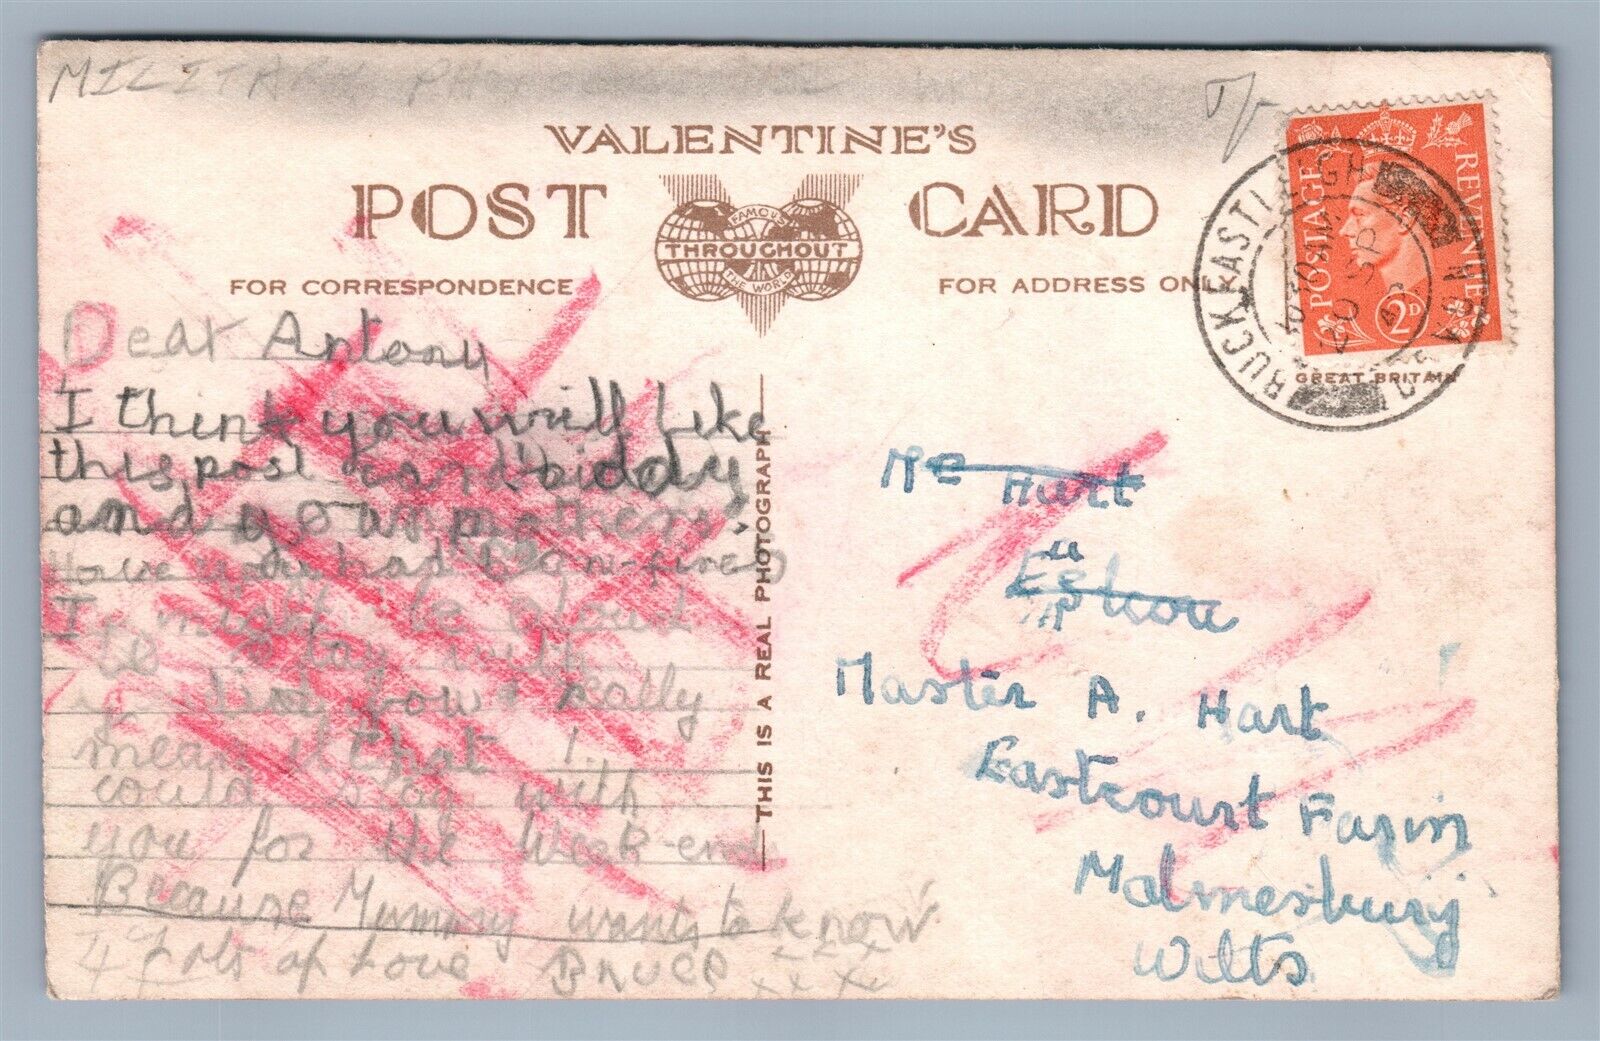 MILITARY
VALENTINE'S
POST CARD
FAMOUS
THROUGHOUT
THE WORLD
FOR CORRESPONDENCE
FOR ADDRESS ONLY
POSTAGE REVENUE
2D
GREAT BRITAIN
BUCKFASTLEIGH
DEVON
20 SP
THIS IS A REAL PHOTOGRAPH
Dear Antony
I think you will like
this post card
and your mothers.
Have you had
I might be aloud
to stay with
really
mean that I
could stay with
you for the Week-end
Because Mummy wants to know
Lots of Love Bruce xxx
xxx
Mr Hart
Master A. Hart
Eastcourt Farm
Malmesbury
Wilts